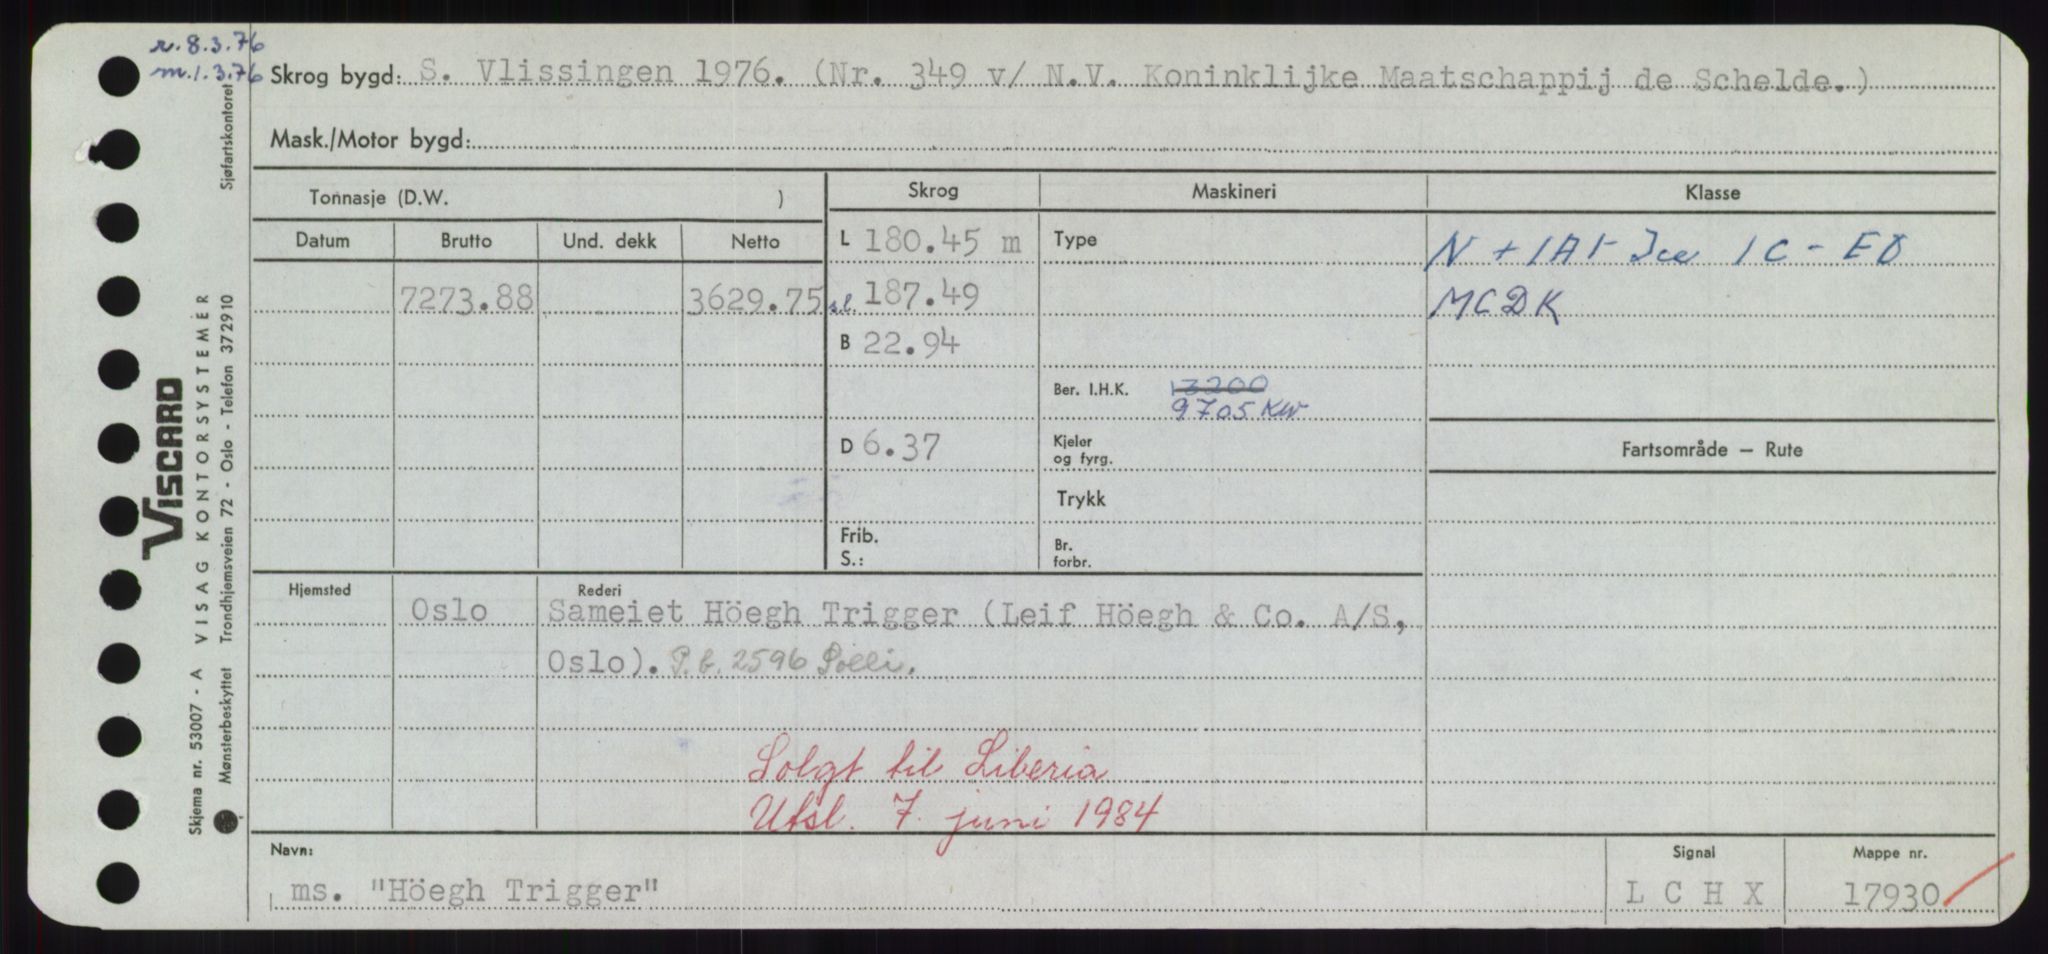 r. 8.3.76
m. 1.3.76
Skrog bygd: S. Vlissingen 1976. (Nr. 349 v/ N.V. Koninklijke Maatschappij de Schelde.)
Mask./Motor bygd:
Tonnasje (D.W. )
Skrog
Maskineri
Klasse
Datum Brutto Und. dekk Netto
L 180.45 m
Type
N + 1A1- Ice 1C - EO
7273.88 3629.75
s.l. 187.49
MCDK
B 22.94
Ber. I.H.K. 13200
9705 KW
D 6.37
Kjeler
og fyrg.
Fartsområde — Rute
Trykk
Frib.
S.:
Br.
forbr.
Hjemsted
Rederi
Oslo Sameiet Höegh Trigger (Leif Höegh & Co. A/S,
Oslo). P.b. 2596 Solli.
Solgt til Liberia
Utsl. 7. juni 1984
Navn:
ms. "Höegh Trigger"
Signal
L C H X
Mappe nr.
17930
Sjøfartskontoret
VISCARD
VISAG KONTORSYSTEMER
Skjema nr. 53007 - A
Mønsterbeskyttet Trondhjemsveien 72 - Oslo - Telefon 372910